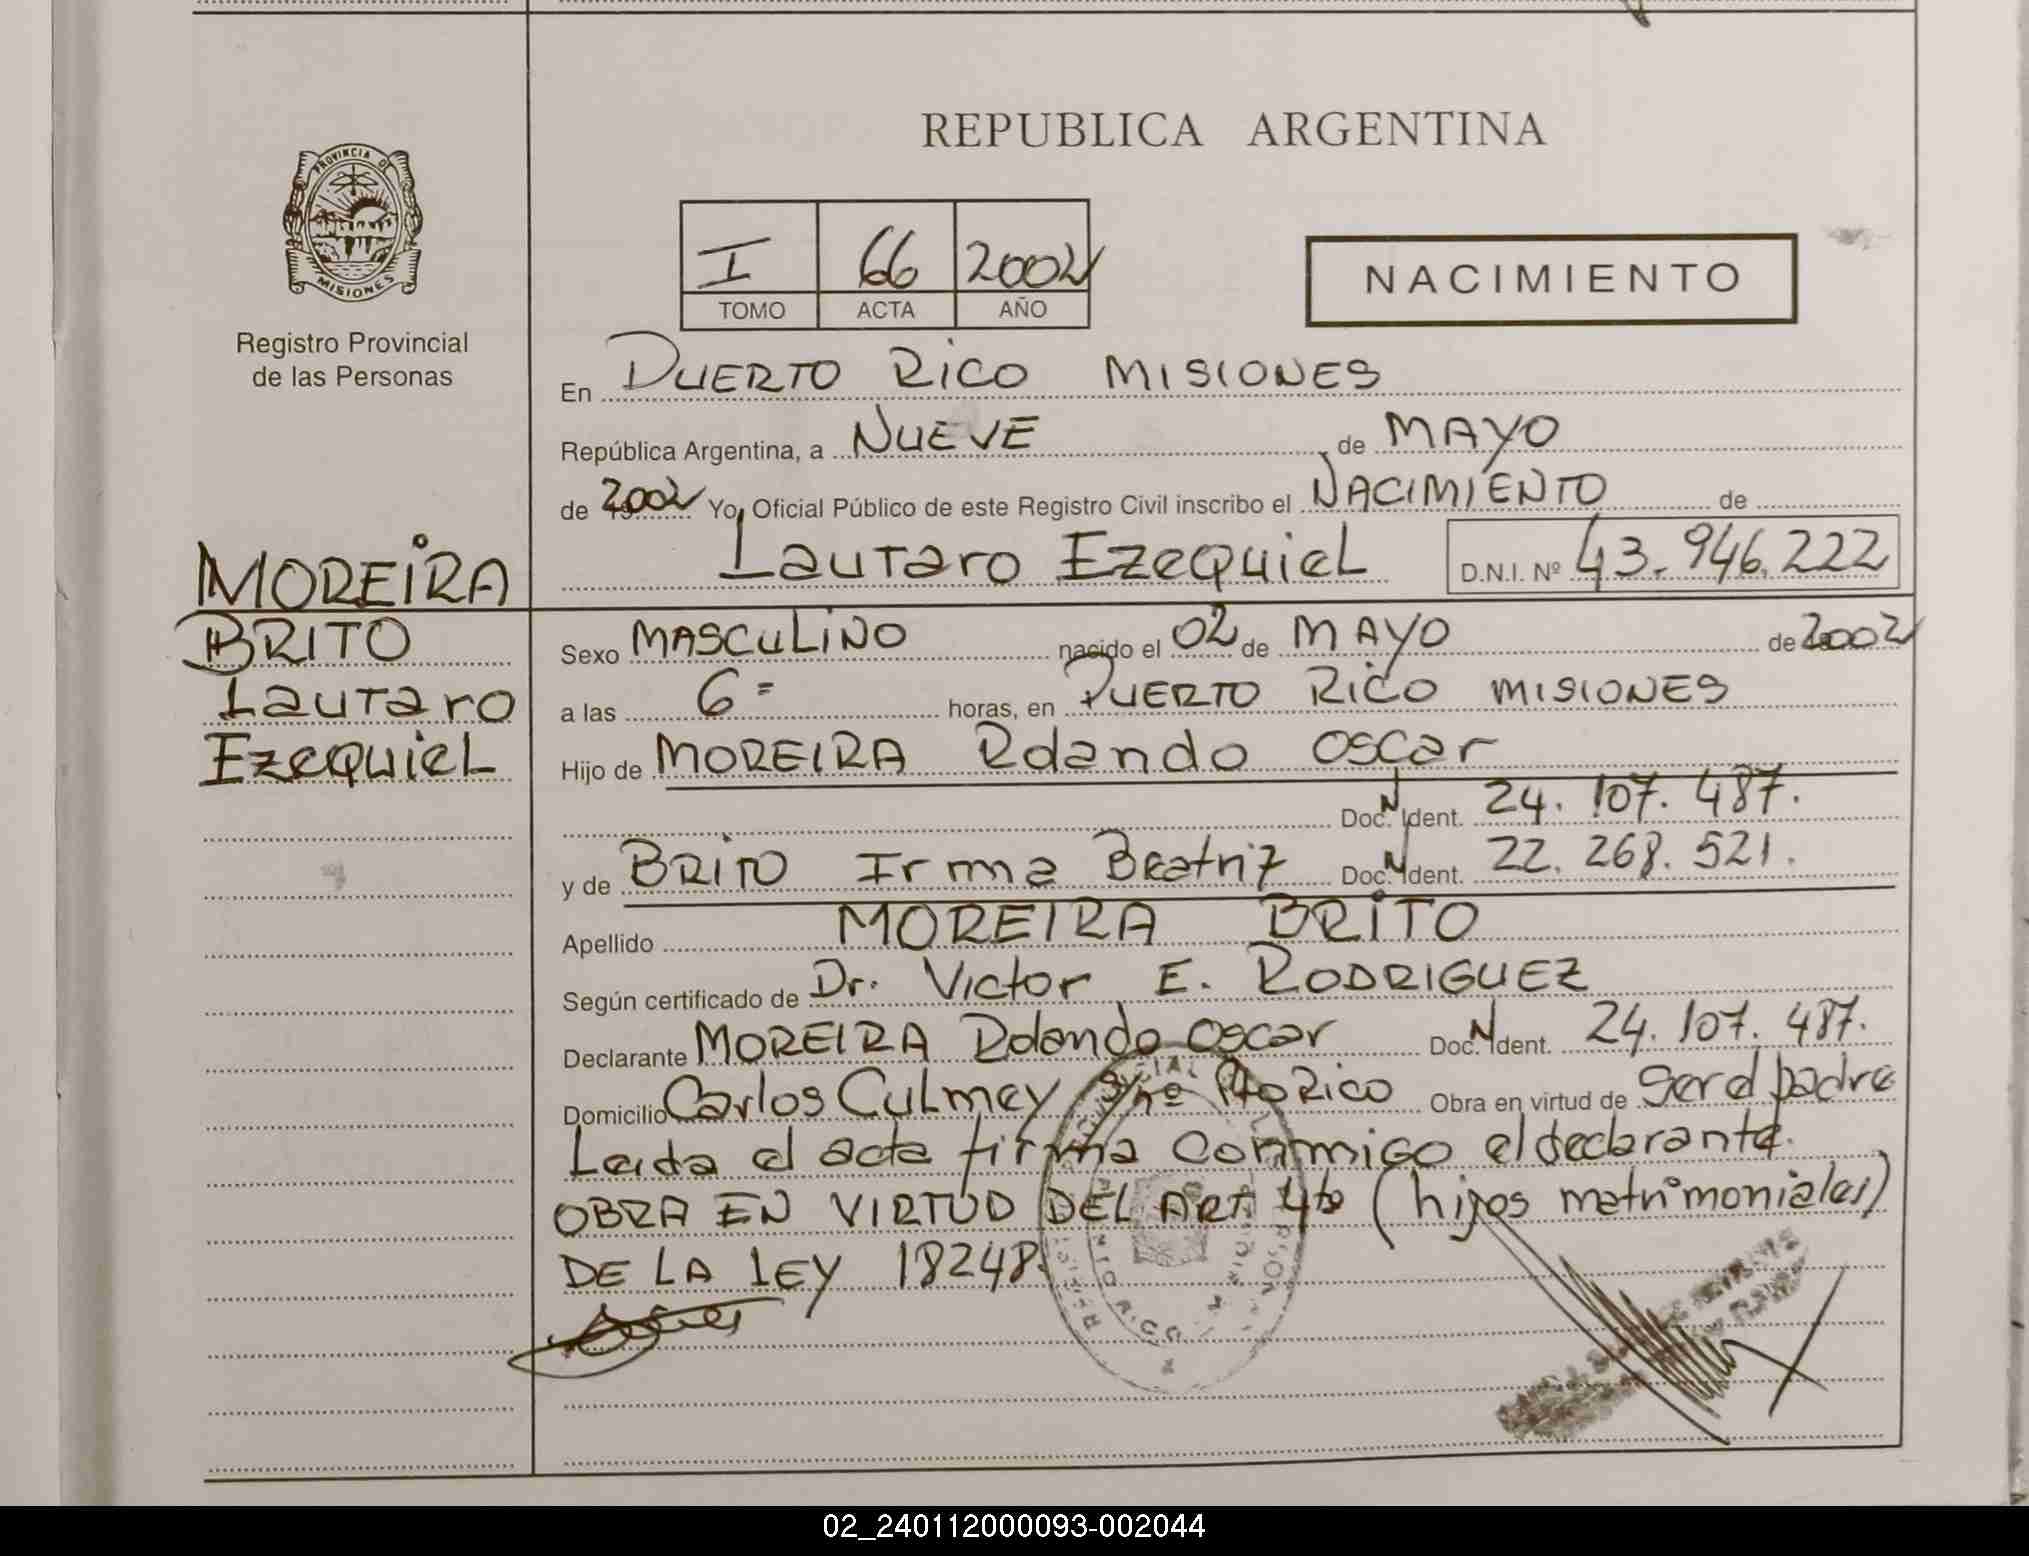 REPUBLICA ARGENTINA
PROVINCIA D
MISIONES
Registro Provincial
de las Personas
I 66 2002
TOMO ACTA AÑO
NACIMIENTO
En PUERTO RICO MISIONES
República Argentina, a NUEVE de MAYO
de 2002 Yo, Oficial Público de este Registro Civil inscribo el NACIMIENTO de
Lautaro Ezequiel D.N.I. Nº 43.946.222
MOREIRA
BRITO
Lautaro
Ezequiel
Sexo MASCULINO nacido el 02 de MAYO de 2002
a las 6= horas, en PUERTO RICO MISIONES
Hijo de MOREIRA Rolando Oscar
Doc. N Ident. 24.107.487.
y de BRITO Irma Beatriz Doc. N Ident. 22.268.521.
Apellido MOREIRA BRITO
Según certificado de Dr. Victor E. RODRIGUEZ
Declarante MOREIRA Rolando Oscar Doc. N Ident. 24.107.487.
Domicilio Carlos Culmey s/nº Pto Rico Obra en virtud de ser el padre
Leida el acta firma conmigo el declarante.
OBRA EN VIRTUD DEL ART 4to (hijos matrimoniales)
DE LA LEY 18248.
02_240112000093-002044